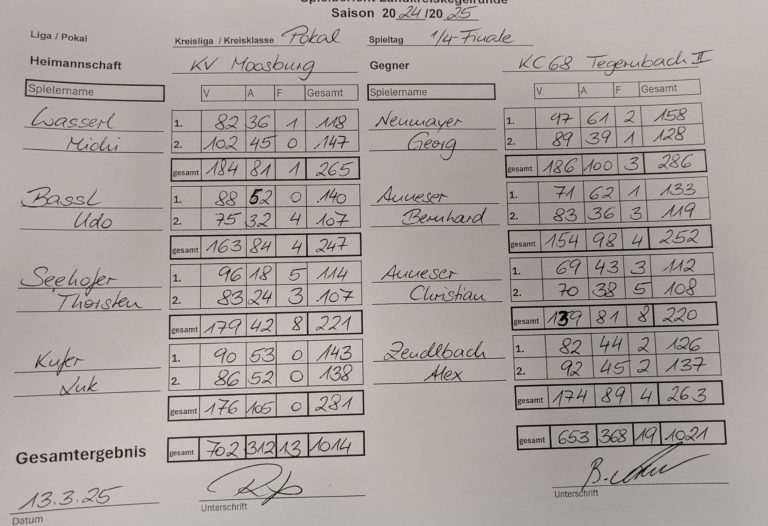 Spielbericht Landkreiskegelrunde
Saison 2024/2025
Liga / Pokal Kreisliga / Kreisklasse Pokal Spieltag 1/4-Finale
Heimannschaft KV Moosburg Gegner KC68 Tegernbach II
Spielername V A F Gesamt Spielername V A F Gesamt
Wasserl 1. 82 36 1 118 Neumayer 1. 97 61 2 158
Michi 2. 102 45 0 147 Georg 2. 89 39 1 128
gesamt 184 81 1 265 gesamt 186 100 3 286
Bassl 1. 88 52 0 140 Anneser 1. 71 62 1 133
Udo 2. 75 32 4 107 Bernhard 2. 83 36 3 119
gesamt 163 84 4 247 gesamt 154 98 4 252
Seehofer 1. 96 18 5 114 Anneser 1. 69 43 3 112
Thorsten 2. 83 24 3 107 Christian 2. 70 38 5 108
gesamt 179 42 8 221 gesamt 139 81 8 220
Kufer 1. 90 53 0 143 Zendlbach 1. 82 44 2 126
Luk 2. 86 52 0 138 Alex 2. 92 45 2 137
gesamt 176 105 0 281 gesamt 174 89 4 263
Gesamtergebnis gesamt 702 312 13 1014 gesamt 653 368 19 1021
13.3.25
Datum Unterschrift Unterschrift